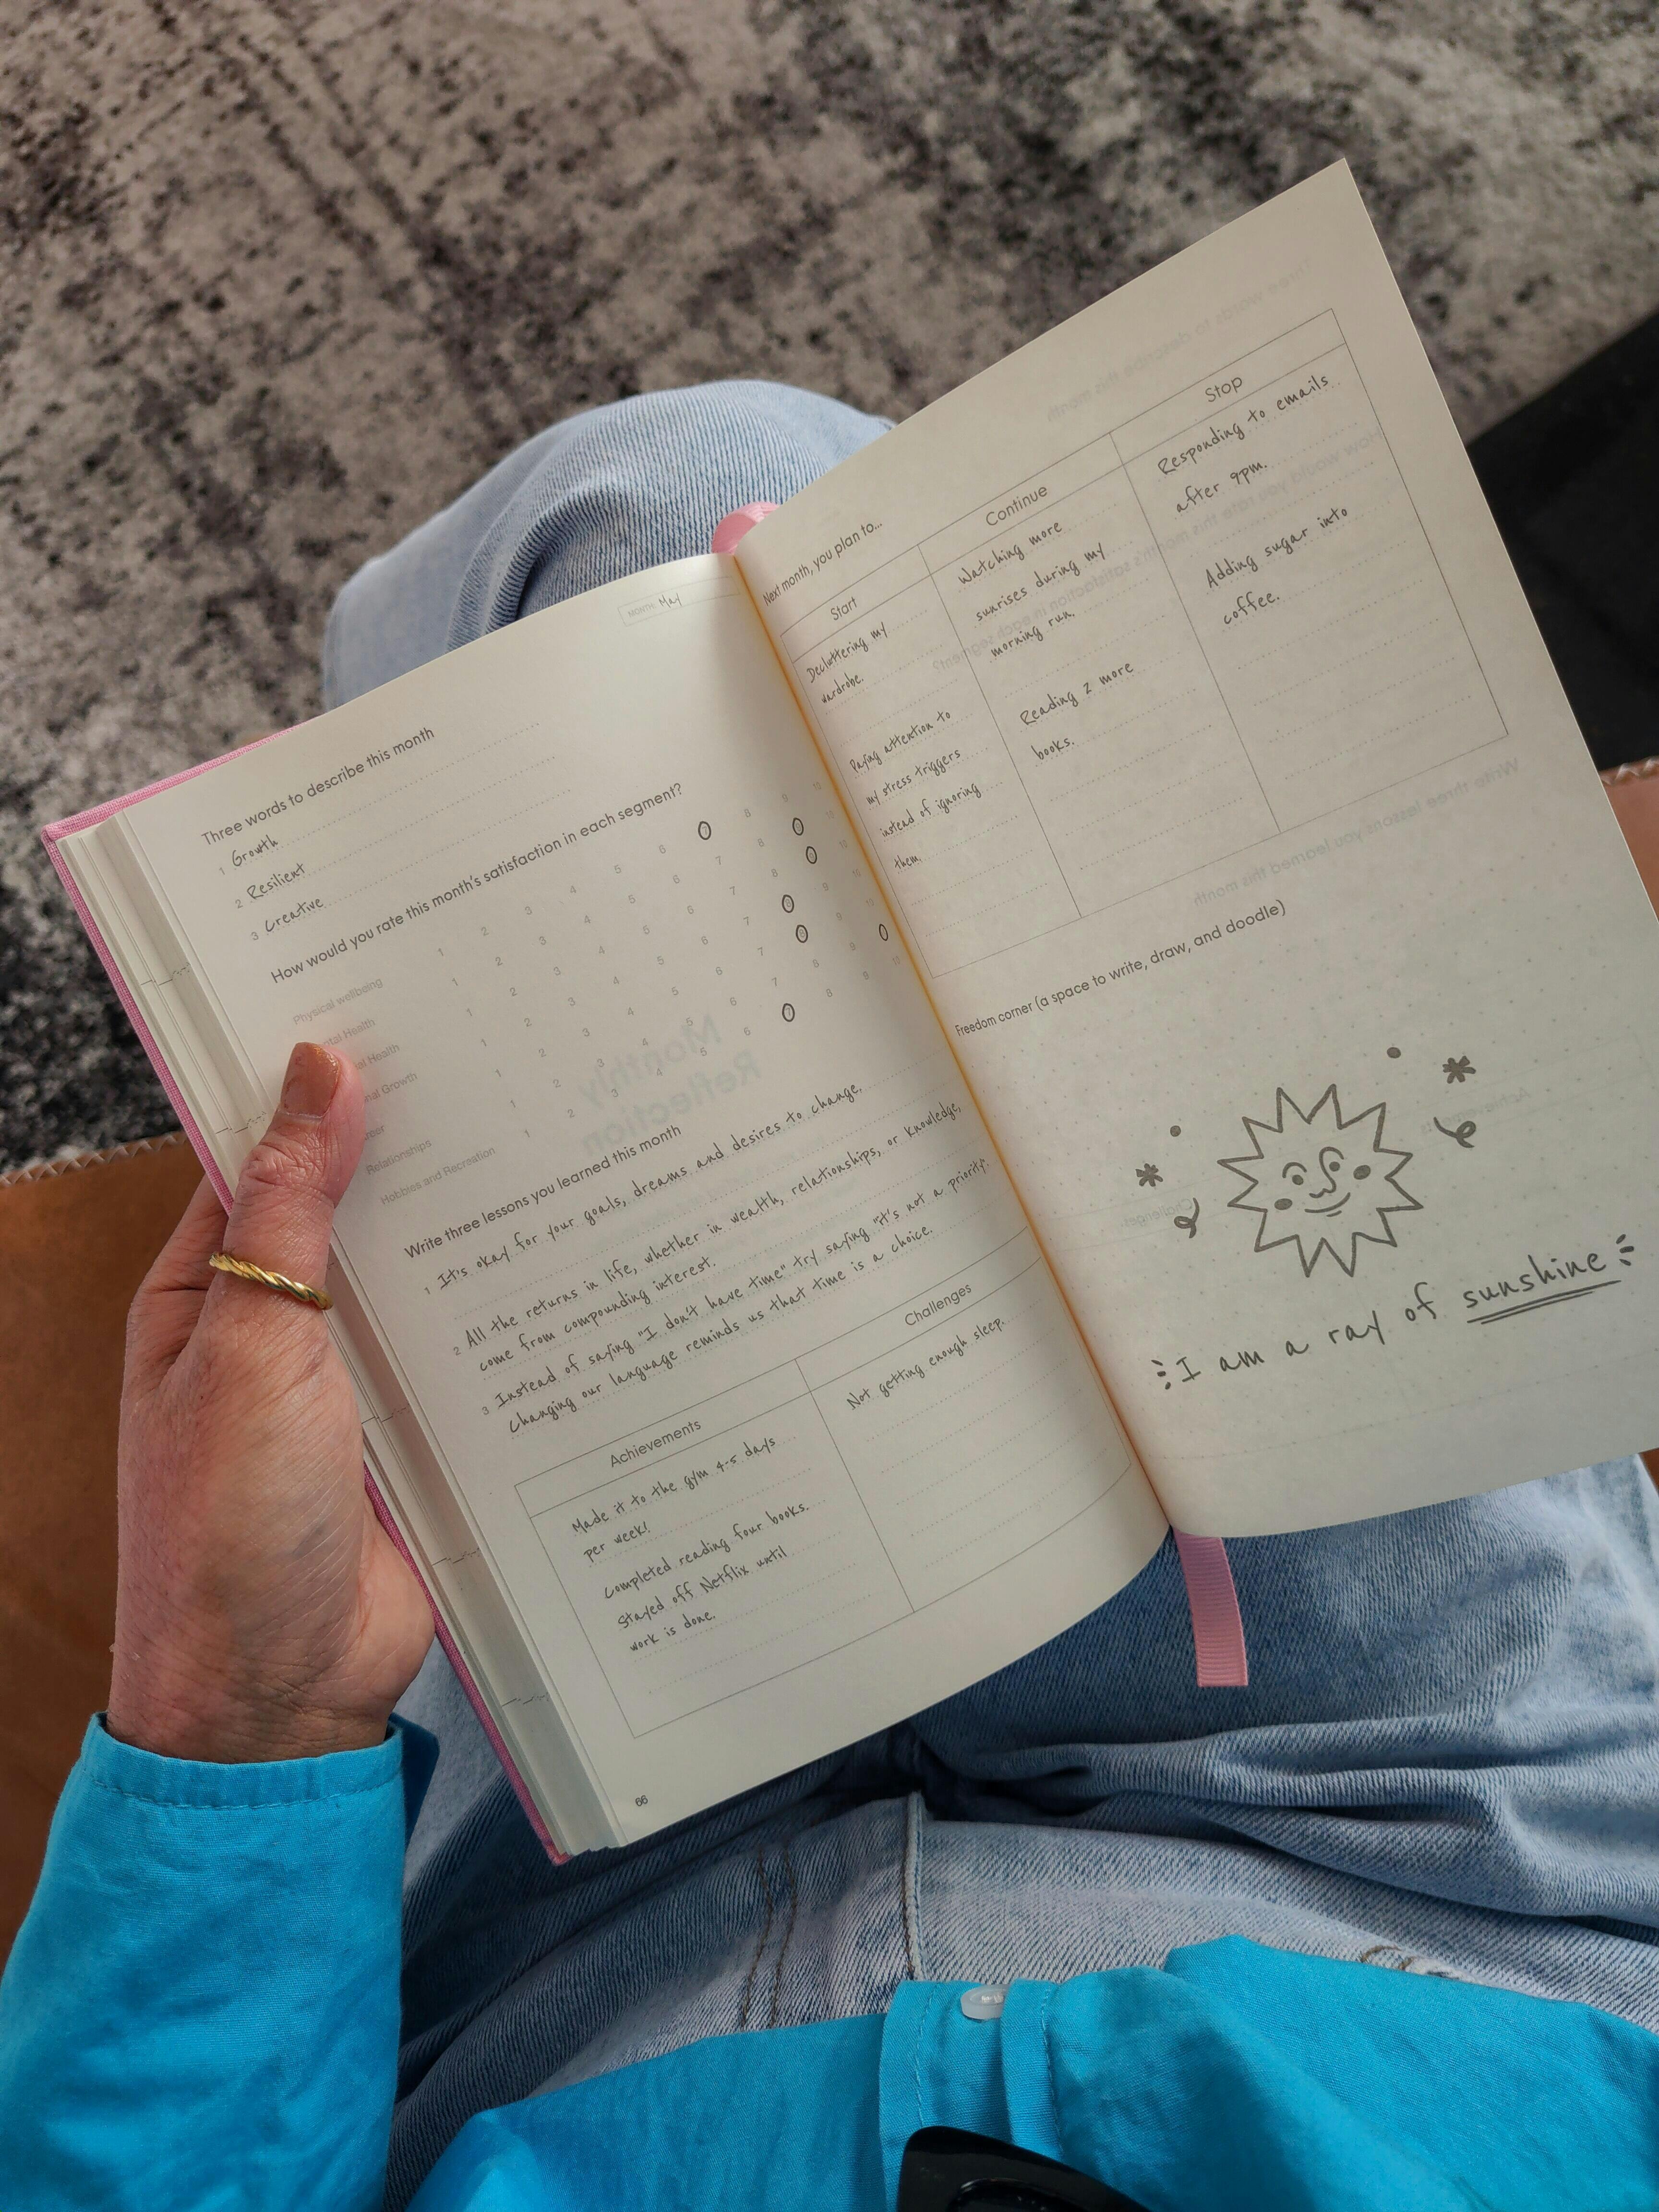 MONTH: May
Three words to describe this month
1 Growth
2 Resilient
3 Creative
How would you rate this month's satisfaction in each segment?
Physical wellbeing 1 2 3 4 5 6 7 8 9 10
ntal Health 1 2 3 4 5 6 7 8 9 10
al Health 1 2 3 4 5 6 7 8 9 10
nal Growth 1 2 3 4 5 6 7 8 9 10
eer 1 2 3 4 5 6 7 8 9 10
Relationships 1 2 3 4 5 6 7 8 9 10
Hobbies and Recreation 1 2 3 4 5 6 7 8 9 10
Write three lessons you learned this month
1 It's okay for your goals, dreams and desires to change.
2 All the returns in life, whether in wealth, relationships, or knowledge,
come from compounding interest.
3 Instead of saying "I don't have time" try saying "it's not a priority".
Changing our language reminds us that time is a choice.
Achievements
Made it to the gym 4-5 days
per week!
Completed reading four books.
Stayed off Netflix until
work is done.
Challenges
Not getting enough sleep.
66
Next month, you plan to...
Start
Decluttering my
wardrobe.
Paying attention to
my stress triggers
instead of ignoring
them.
Continue
Watching more
sunrises during my
morning run.
Reading 2 more
books.
Stop
Responding to emails
after 9pm.
Adding sugar into
coffee.
Freedom corner (a space to write, draw, and doodle)
I am a ray of sunshine